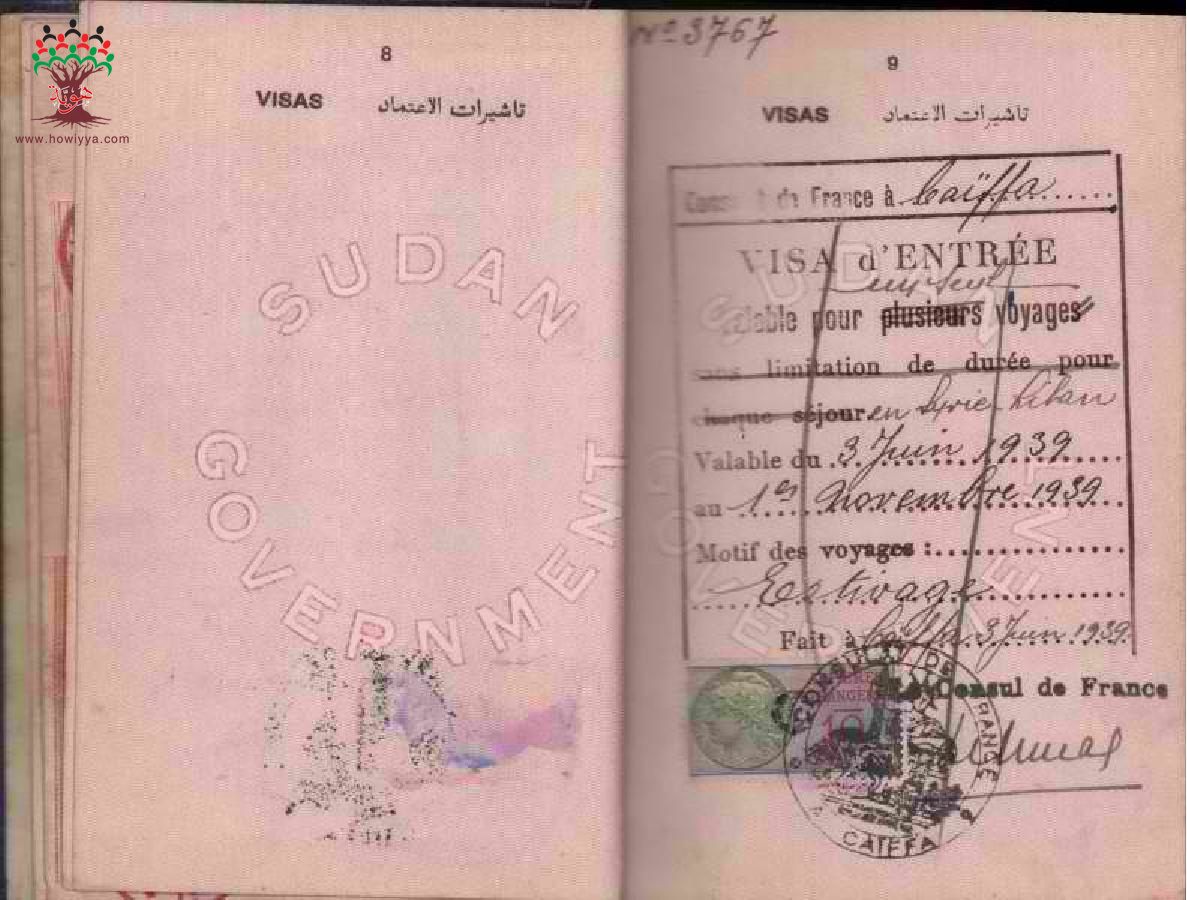 www.howiyya.com
8
VISAS تاشيرات الاعتماد
SUDAN
GOVERNMENT
Nº 3767
9
VISAS تاشيرات الاعتماد
de France à Caïffa
VISA d'ENTRÉE
un seul
valable pour plusieurs voyages
sans limitation de durée pour
chaque séjour en Syrie-Liban
Valable du 3 Juin 1939
au 1er Novembre 1939
Motif des voyages :
Estivage
Fait à Caïffa 3 Juin 1939
Le Consul de France
10
CONSULAT DE FRANCE
CAIFFA